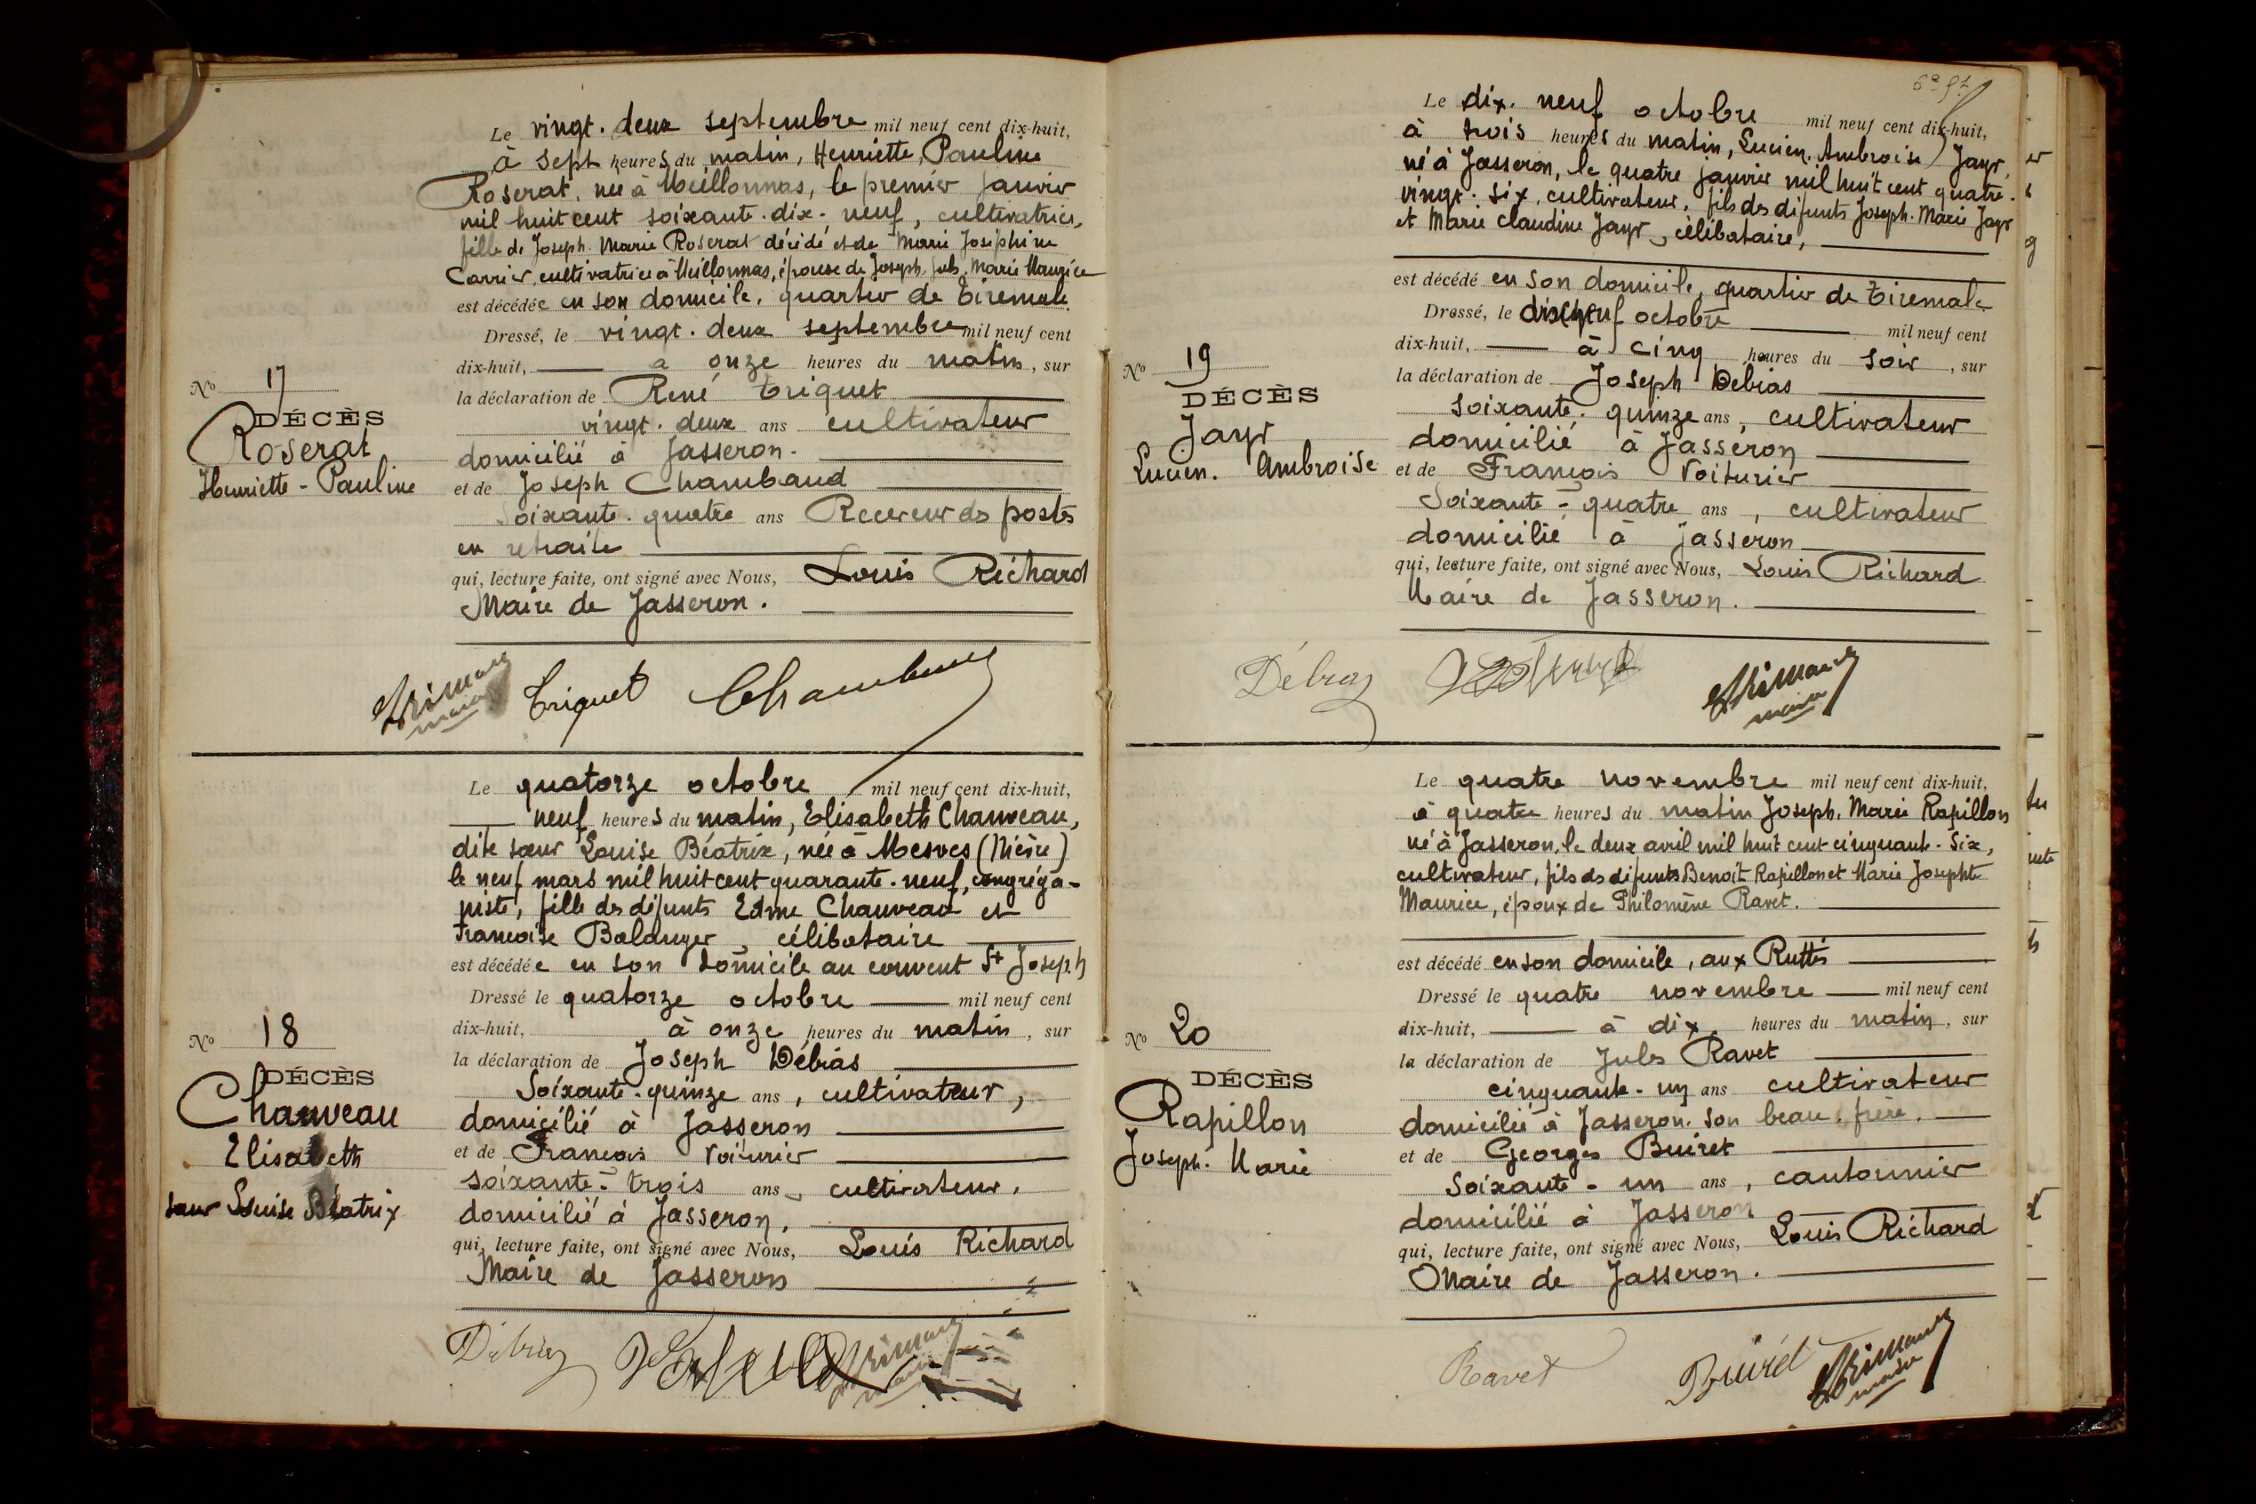 Le vingt. deux septembre mil neuf cent dix-huit,
à sept heures du matin, Henriette, Pauline
Roserat, née à Meillonnas, le premier janvier
mil huit cent soixante. dix. neuf, cultivatrice,
fille de Joseph. Marie Roserat décédé et de Marie Joséphine
Carrier, cultivatrice à Meillonnas, épouse de Joseph, Jules, Marie Maurice
est décédée en son domicile, quartier de Tiremale.
Dressé, le vingt. deux septembre mil neuf cent
dix-huit, à onze heures du matin, sur
la déclaration de René Triquet
vingt. deux ans cultivateur
domicilié à Jasseron.
et de Joseph Chambaud
Soixante. quatre ans Receveur des postes
en retraite
qui, lecture faite, ont signé avec Nous, Louis Richard
Maire de Jasseron.
No 17
DÉCÈS
Roserat
Henriette - Pauline
maire Triquet
Le quatorze octobre mil neuf cent dix-huit,
neuf heures du matin, Elisabeth Chauveau,
dite sœur Louise Béatrix, née à Mesves (Nièvre)
le neuf mars mil huit cent quarante. neuf, congréga-
niste, fille des défunts Edme Chauveau et
Francoise Balanger, célibataire
est décédée en son domicile au couvent St Joseph
Dressé le quatorze octobre mil neuf cent
dix-huit, à onze heures du matin, sur
la déclaration de Joseph Débias
Soixante. quinze ans, cultivateur,
domicilié à Jasseron
et de Francois Voiturier
soixante - trois ans, cultivateur,
domicilié à Jasseron,
qui, lecture faite, ont signé avec Nous, Louis Richard
Maire de Jasseron
No 18
DÉCÈS
Chauveau
Elisabeth
sœur Louise Béatrix
maire
Le dix. neuf octobre mil neuf cent dix-huit,
à trois heures du matin, Lucien. Ambroise Jayr,
né à Jasseron, le quatre janvier mil huit cent quatre.
vingt. six, cultivateur, fils des défunts Joseph. Marie Jayr
et Marie Claudine Jayr, célibataire,
est décédé en son domicile, quartier de Tiremale
Dressé, le dix neuf octobre mil neuf cent
dix-huit, à cinq heures du soir, sur
la déclaration de Joseph Débias
soixante. quinze ans, cultivateur
domicilié à Jasseron
et de François Voiturier
Soixante - quatre ans, cultivateur
domicilié à Jasseron
qui, lecture faite, ont signé avec Nous, Louis Richard
Maire de Jasseron.
No 19
DÉCÈS
Jayr
Lucien. Ambroise
maire
Le quatre novembre mil neuf cent dix-huit,
à quatre heures du matin Joseph. Marie Rapillon
né à Jasseron, le deux avril mil huit cent cinquante. Six,
cultivateur, fils des défunts Benoît Rapillon et Marie Josephte
Maurice, époux de Philomène Ravet.
est décédé en son domicile, aux Ruttis
Dressé le quatre novembre mil neuf cent
dix-huit, à dix heures du matin, sur
la déclaration de Jules Ravet
cinquante - un ans cultivateur
domicilié à Jasseron. son beau. frère.
et de Georges Buiret
Soixante - un ans, cantonnier
domicilié à Jasseron
qui, lecture faite, ont signé avec Nous, Louis Richard
Maire de Jasseron.
No 20
DÉCÈS
Rapillon
Joseph. Marie
Ravet Buiret maire